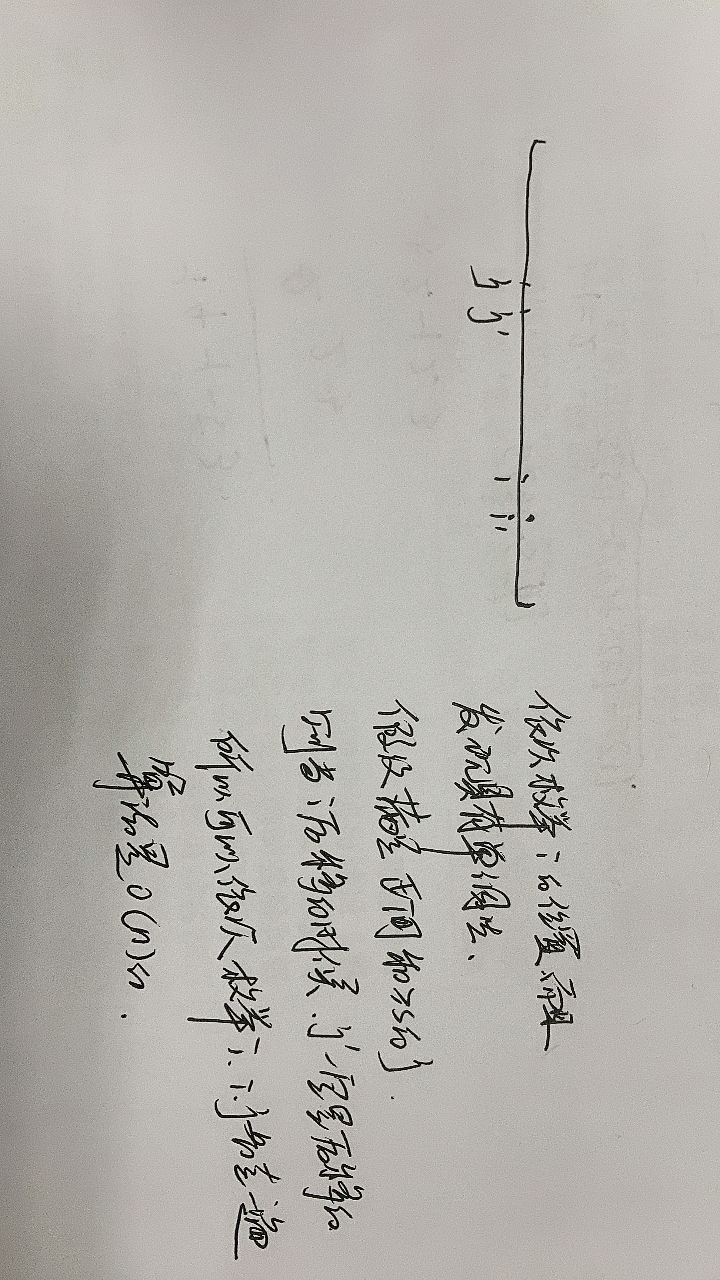 j j' i i'
依次枚举 i 的位置 而且
发现具有单调性.
假设满足 区间和≥S的j.
则当 i 后移的时候, j'一定是后移的
所以可以依次枚举 i. i.j 各走一遍
算法是 O(n)的.